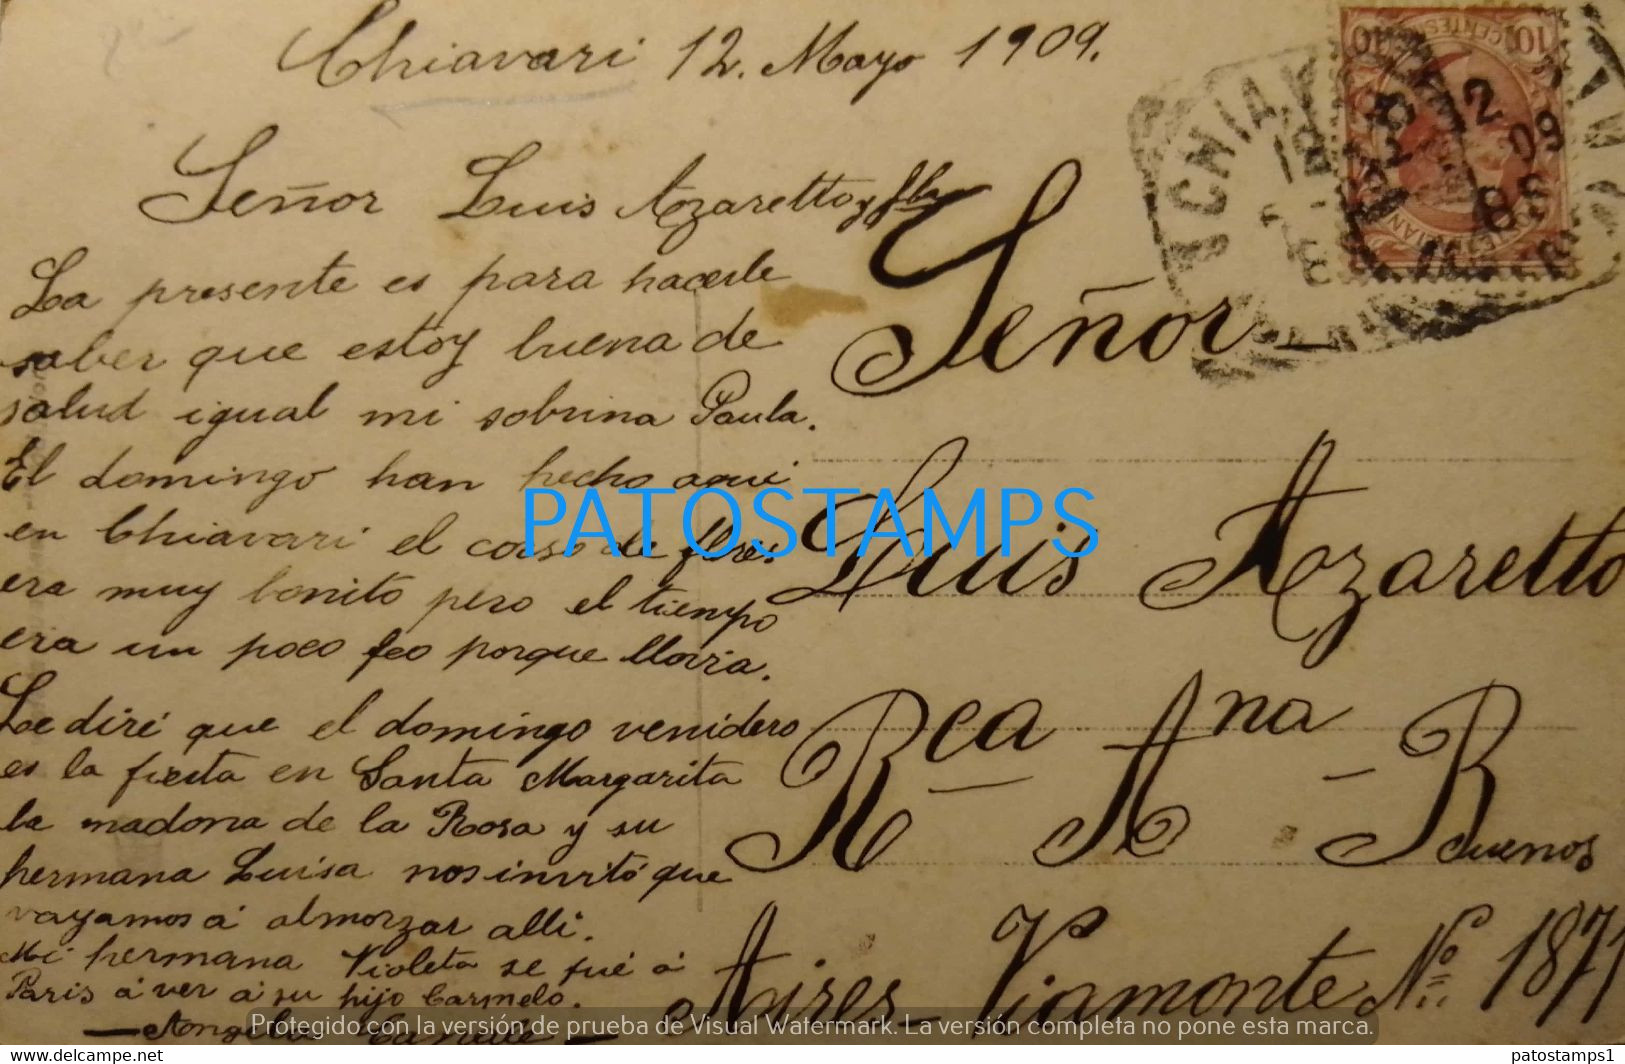 Chiavari 12. Mayo 1909.
Señor Luis Azaretto y flia
La presente es para hacerle
saber que estoy buena de
salud igual mi sobrina Paula.
El domingo han hecho aqui
en Chiavari el corso de flores
era muy bonito pero el tiempo
era un poco feo porque llovia.
Le diré que el domingo venidero
es la fiesta en Santa Margarita
la madona de la Rosa y su
hermana Luisa nos invitó que
vayamos á almorzar alli.
Mi hermana Violeta se fué á
Paris á ver á su hijo Carmelo.
Señor
Luis Azaretto
Rca Ana - Buenos
Aires - Viamonte No 1871
10 CENTES 10
CHIA
12
09
8S
PATOSTAMPS
Protegido con la versión de prueba de Visual Watermark. La versión completa no pone esta marca.
www.delcampe.net
patostamps1